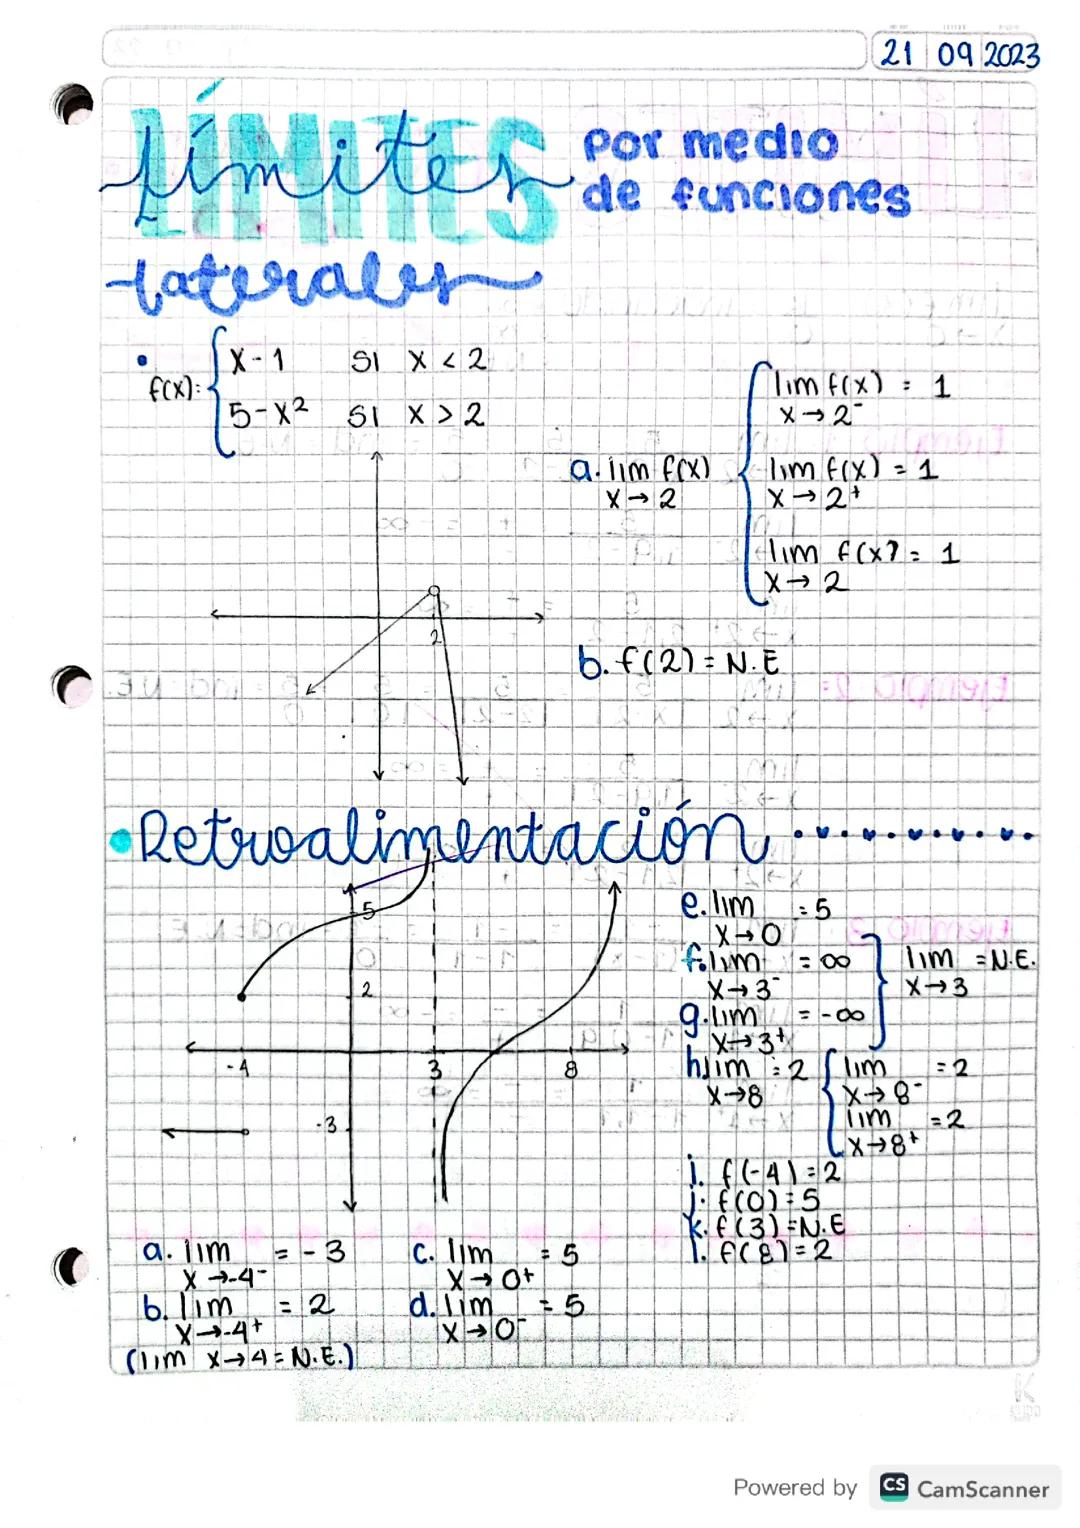 21 09 2023
LÍMITES
Límites por medio
de funciones
laterales
f(x): x - 1 si x < 2
5 - x² si x > 2
a. lim f(x)
x → 2
lim f(x) = 1
x → 2⁻
lim f(x) = 1
x → 2⁺
lim f(x) = 1
x → 2
2
b. f(2) = N.E
Retroalimentación
5
2
-4
3
8
-3
e. lim = 5
x → 0
f. lim = ∞
x → 3⁻
g. lim = -∞
x → 3⁺
lim = N.E.
x → 3
h. lim = 2
x → 8
lim = 2
x → 8⁻
lim = 2
x → 8⁺
i. f(-4) = 2
j. f(0) = 5
k. f(3) = N.E
l. f(8) = 2
a. lim = -3
x → -4⁻
b. lim = 2
x → -4⁺
(lim x → 4 = N.E.)
c. lim = 5
x → 0⁺
d. lim = 5
x → 0⁻
Powered by CS CamScanner